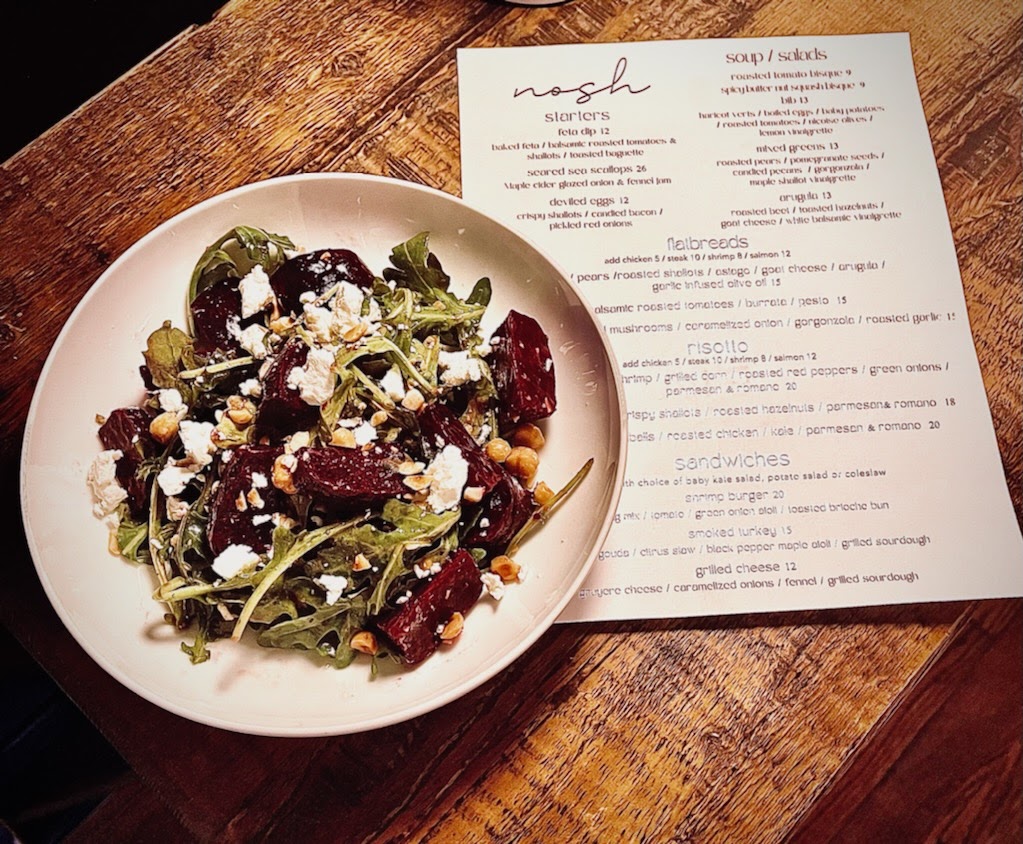 nosh
starters
feta dip 12
baked feta / balsamic roasted tomatoes &
shallots / toasted baguette
seared sea scallops 26
Maple cider glazed onion & fennel jam
deviled eggs 12
crispy shallots / candied bacon /
pickled red onions
soup / salads
roasted tomato bisque 9
spicy butter nut squash bisque 9
bib 13
haricot verts / boiled eggs / baby potatoes
/ roasted tomatoes / nicoise olives /
lemon vinaigrette
mixed greens 13
roasted pears / pomegranate seeds /
candied pecans / gorgonzola /
maple shallot vinaigrette
arugula 13
roasted beet / toasted hazelnuts /
goat cheese / white balsamic vinaigrette
flatbreads
add chicken 5 / steak 10 / shrimp 8 / salmon 12
/ pears /roasted shallots / asiago / goat cheese / arugula /
garlic infused olive oil 15
alsamic roasted tomatoes / burrata / pesto 15
mushrooms / caramelized onion / gorgonzola / roasted garlic 15
risotto
add chicken 5 / steak 10 / shrimp 8 / salmon 12
hrimp / grilled corn / roasted red peppers / green onions /
parmesan & romano 20
rispy shallots / roasted hazelnuts / parmesan& romano 18
balls / roasted chicken / kale / parmesan & romano 20
sandwiches
th choice of baby kale salad, potato salad or coleslaw
shrimp burger 20
g mix / tomato / green onion aioli / toasted brioche bun
smoked turkey 15
gouda / citrus slaw / black pepper maple aioli / grilled sourdough
grilled cheese 12
gruyere cheese / caramelized onions / fennel / grilled sourdough